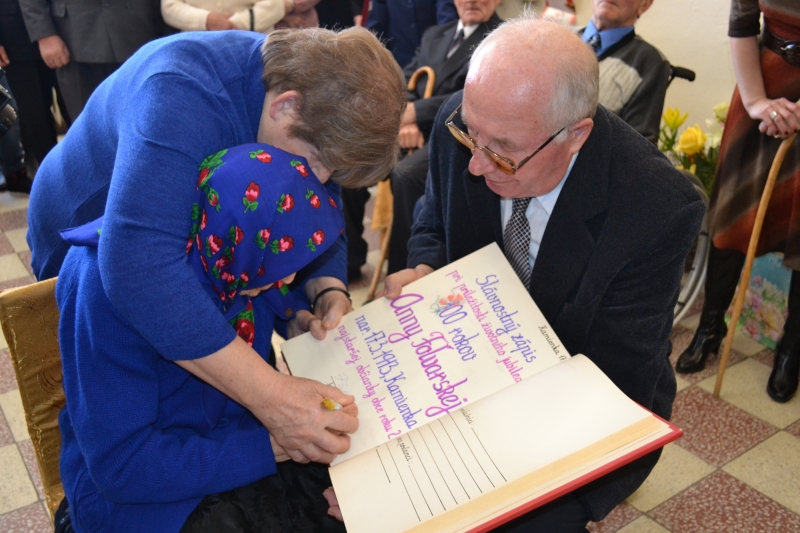 Slávnostný zápis
pri príležitosti životného jubilea
100 rokov
Anny Folvarskej
nar. 17.3.1913, Kamienka
najstaršej občianky obce roku
Kamienka